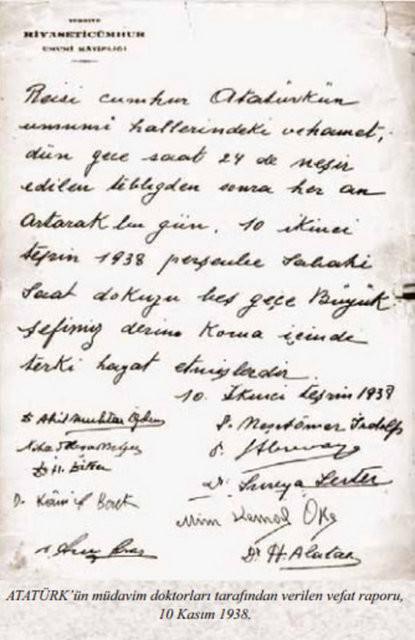 TÜRKİYE
RİYASETİCÜMHUR
UMUMİ KÂTİPLİĞİ
Reisi cumhur Atatürkün
umumî hallerindeki vehamet,
dün gece saat 24 de neşir
edilen tebliğden sonra her an
artarak bu gün, 10 ikinci
teşrin 1938 perşenbe sabahı
saat dokuzu beş geçe Büyük
şefimiz derin koma içinde
terki hayat etmişlerdir.
10. İkinci teşrin 1938
Dr Akil Muhtar Özden
Dr. Neşet Ömer İrdelp
Dr H. Diker
Dr. Süreya Serter
Dr. Kâmil Berk
Mim Kemal Öke
Dr H. Alataş
ATATÜRK'ün müdavim doktorları tarafından verilen vefat raporu,
10 Kasım 1938.